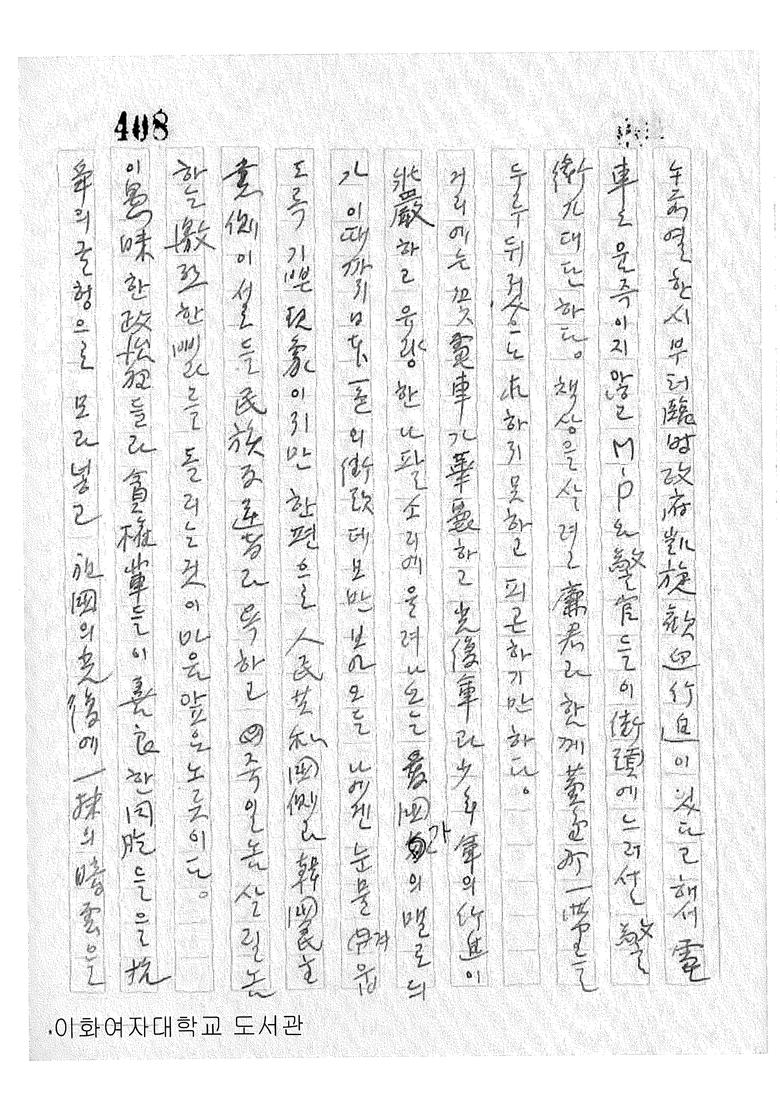 408
오전 열한시부터 臨時政府 凱旋 歡迎行進이 있다고 해서 電
車도 움즉이지 않고 M.P와 警官들이 街頭에 느러선 警
衛가 대단하다. 책상을 살려고 廉君과 함께 一帶를
두루 뒤젔으나 사하지 못하고 피곤하기만 하다.
거리에는 꽃電車가 華麗하고 光復軍과 少年軍의 行進이
壯嚴하고 유량한 나팔소리에 울려나오는 愛國가의 멜로듸
가 이때까지 日本一色의 街頭데모만 보아오든 나에겐 눈물겨웁
도록 기쁜 現象이지만 한편으로 人民共和國側과 韓國民主
黨側이 서로들 民族反逆者라 욕하고 죽일놈 살릴놈
하는 激烈한 삐라를 돌리는것이 마음 앞은 노릇이다.
이 愚昧한 政治群들과 貪權輩들이 善良한 同胞들을 抗
爭의 올형으로 모라넣고 祖國의 光復에 一抹의 暗雲을
이화여자대학교 도서관